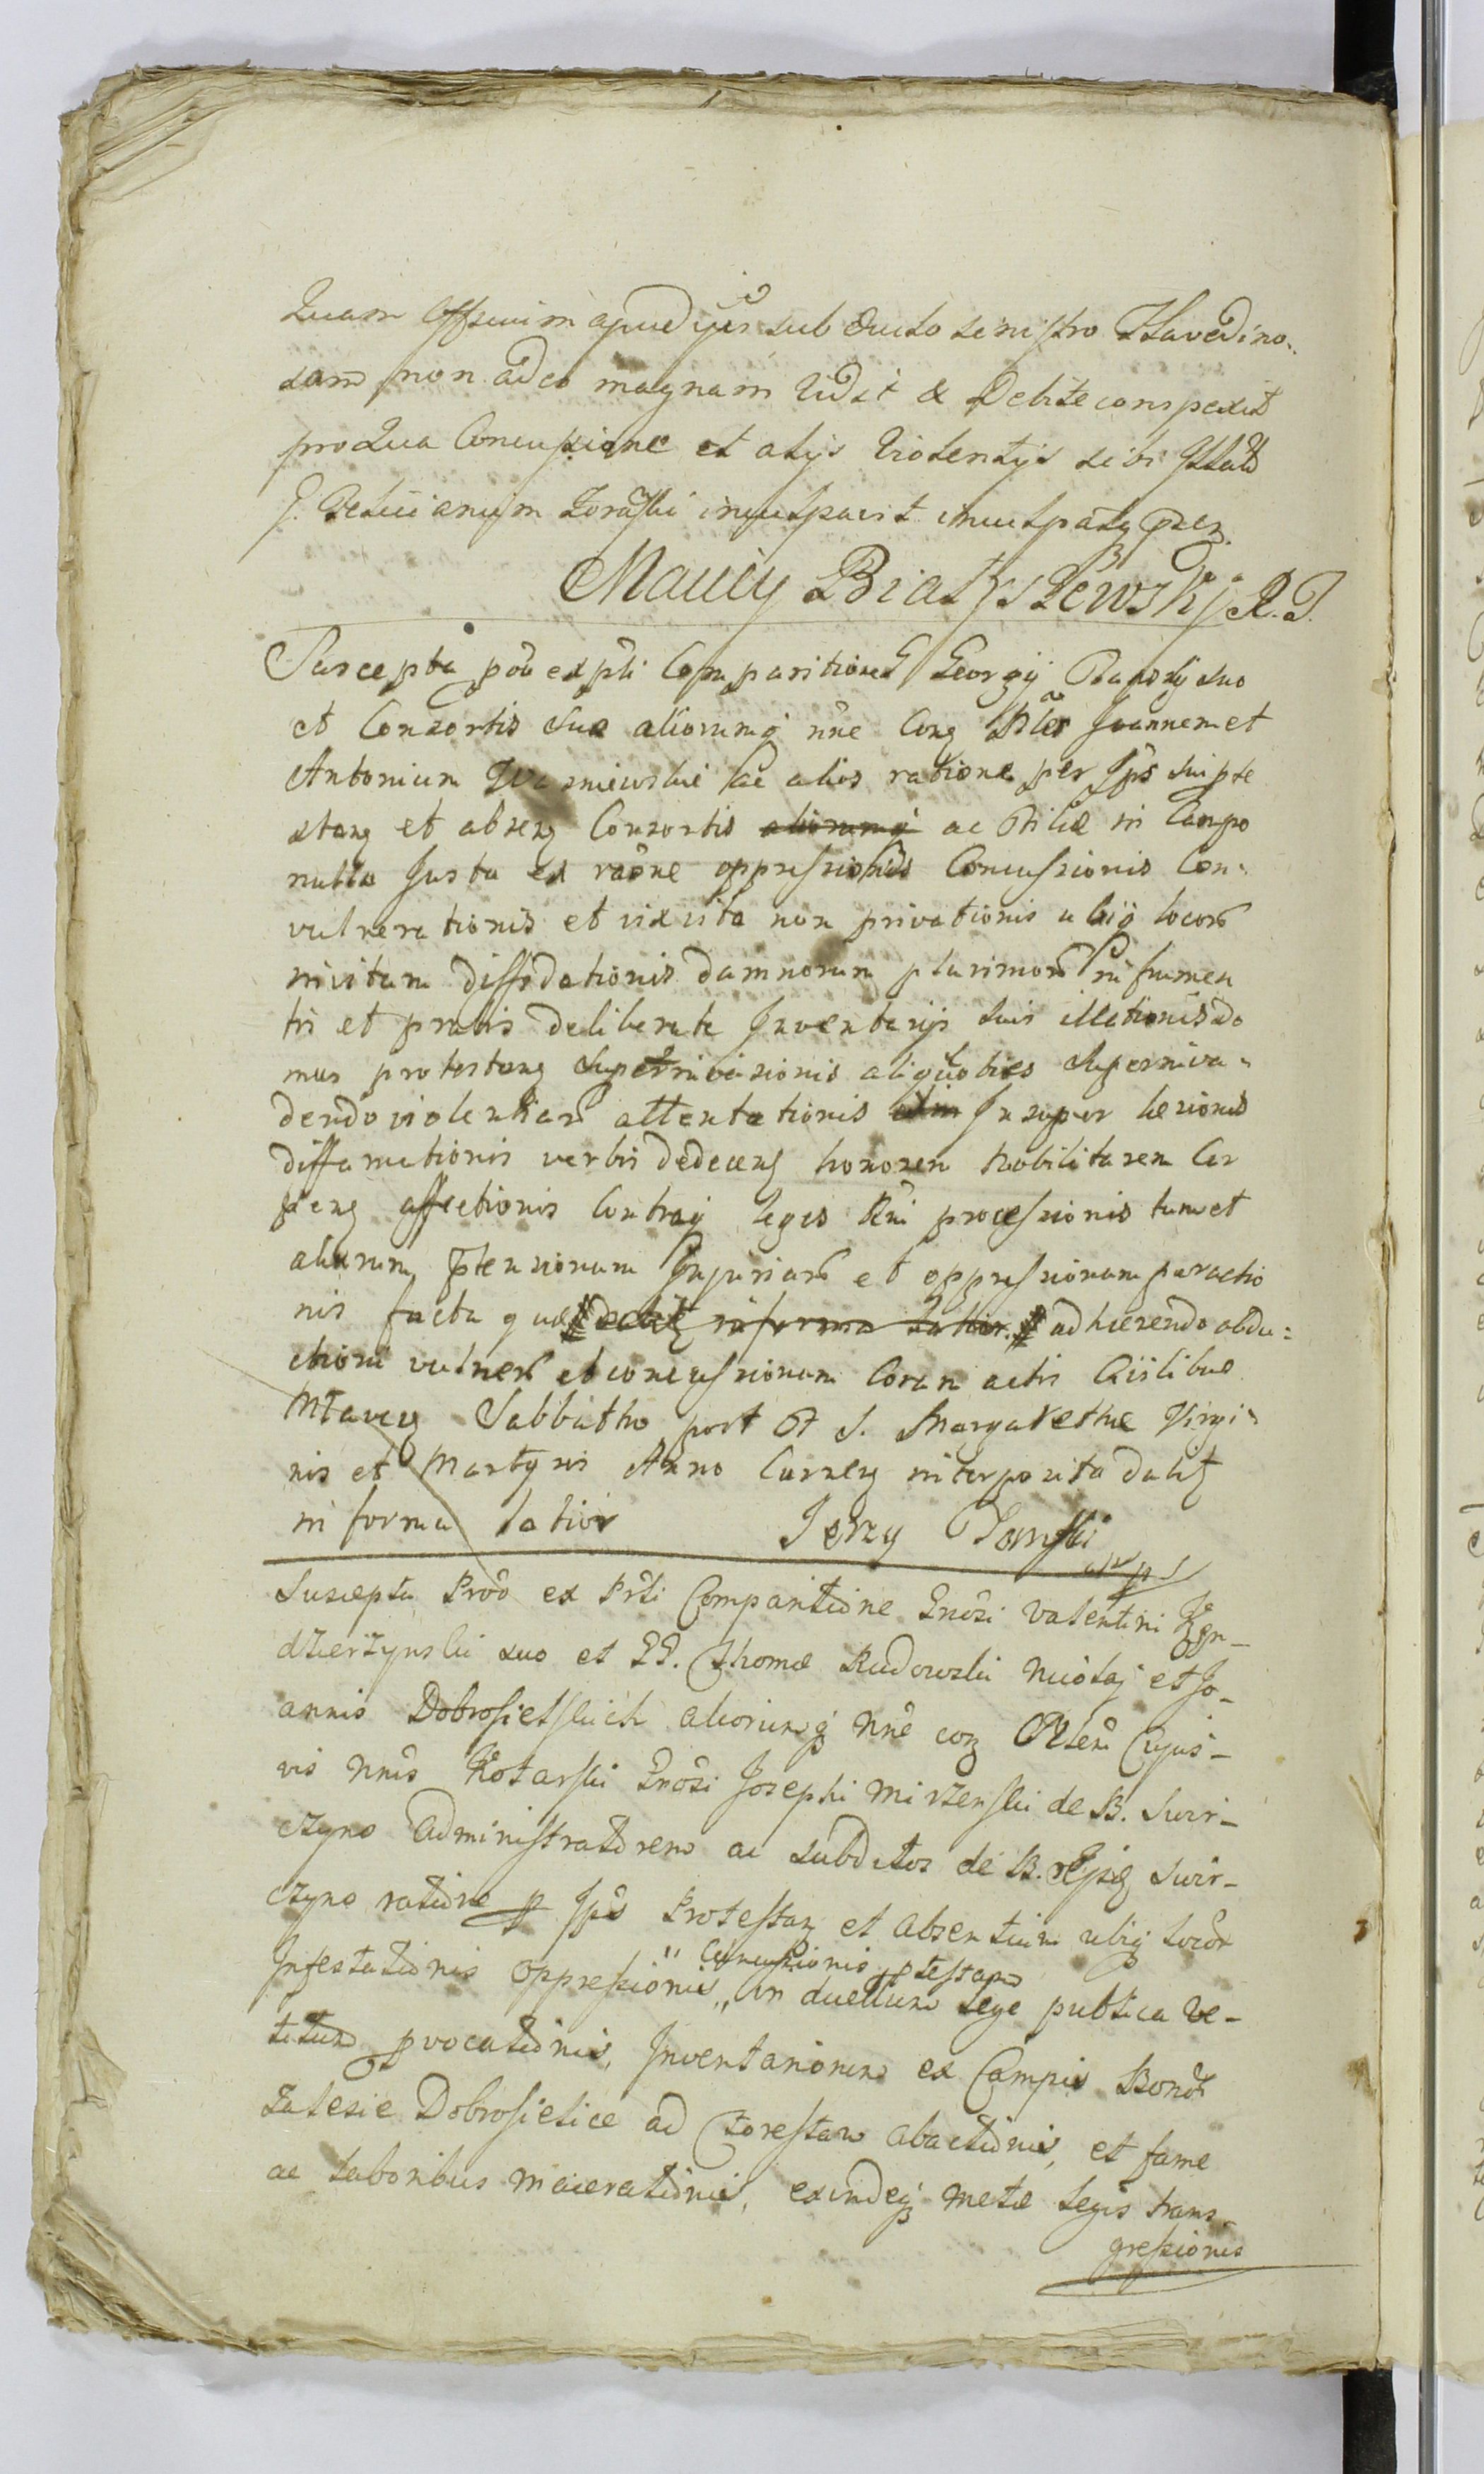 Quam offensim apud sub oculo sinistro flavedino:
sam non adeo magnam vidit & Debite conspexit
pro qua Concussione et alijs violentijs sibi Illatis
G. Felicianum Zoraski inculpavit inculpatq prnz.
Maciey Białyszewski R. T.
Suscepta pōu ex pṡti Comparitione G Georgij suo
et Consortis suæ aliorumq nne Conz Joannem et
Antonium Wasniewskie ac alios ratione per Ips suipte
stanz et absenz Consortis aliorumq ac Filiæ in Campo
nulla Justa ex raōne oppressionis Concussionis Con:
vulnerationis et vix vita non privationis ubiq locorū
in vitam diffidationis damnorum plurimorū in frumen
tis et pratis deliberate Inventarijs suis illationis do
mus protestanz Superinvasionis aliquoties Superinva:
dendo violentiarū attentationis Insuper læsionis
diffamationis verbis dedecenz honorem Nobilitarem Car
penz affectionis Contraq leges Rni processionis tum et
aliarum ptensionum Injuriarū et oppressionum peractio
nis facta quæ dabitz in forma latior. adhærendo obdu:
ctioni vulnerū et concussionum Coram actis Civilibus
Mlavens Sabbatho post F S. Margarethæ Virgi:
nis et Martyris Anno Currenz interposita dabitz
in forma latior Jerzy
Suscepta Prōo ex Prṡti Comparitione Gnōsi Valentini Ję
dzierzynski suo et GG. Thomæ Rudowski Nicolaj et Jo-
annis Dobrosielskich aliorumq nne conz Cujus-
vis nnis Kotarski Gnōsi Josephi Mirzenski de B. Swir-
czyno Administratorem ac subditos de B. ejsq Swir-
czyno ratione p Ips Protestanz et absentium ubiq locōr
Infestationis oppressionis " Concussionis ptestan
in duellum Lege publica ve-
titum pvocationis, Inventariorum ex Campis Bonōr
Zalesie Dobrosielice ad Forestam abactionis, et fame
ac laboribus macerationis, exindeq metæ legis trans-
gressionis